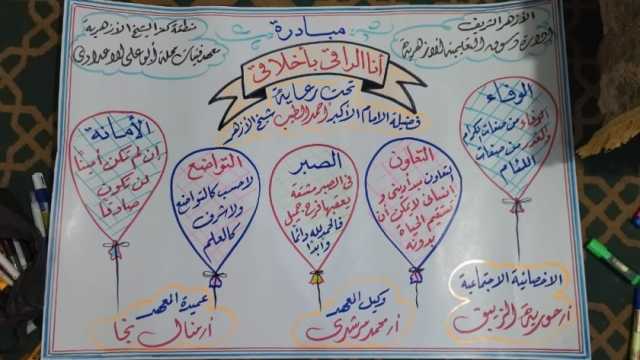 الأزهر الشريف
إدارة دسوق التعليمية الأزهرية
مبادرة
منطقة كفر الشيخ الأزهرية
معهد فتيات محلة أبو على الاعدادى
أنا الراقي بأخلاقي
تحت رعاية
فضيلة الإمام الأكبر أحمد الطيب شيخ الأزهر
الوفاء
الوفاء من صفات الكرام
والغدر من صفات
اللئام
التعاون
التعاون مبدأ دينى و
انسانى لا يمكن أن
تستقيم الحياة
بدونه
الصبر
فى الصبر مشقة
يعقبها فرج جميل
فالحمد لله دائما
وابدا
التواضع
لا حسب كالتواضع
ولا شرف
كالعلم
الأمانة
إن لم تكن أمينا
لن تكون
صادقا
الاخصائية الاجتماعية
أ/ حورية الزيبق
وكيل المعهد
أ/ محمد مرشدى
عميدة المعهد
أ/ منال نجا